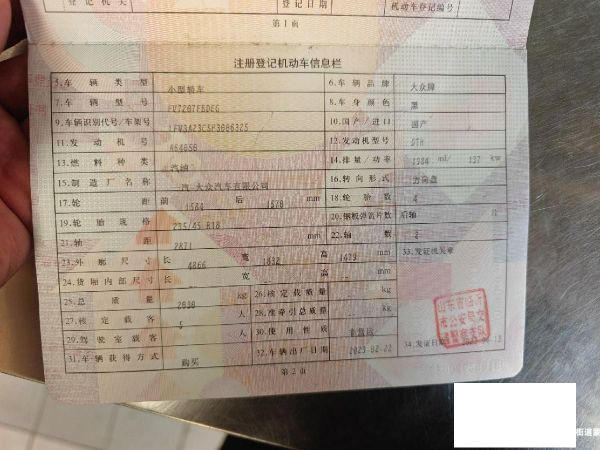 登记机关
登记日期
机动车登记编号
第1页
注册登记机动车信息栏
5.车辆类型 小型轿车 6.车辆品牌 大众牌
7.车辆型号 8.车身颜色 黑
9.车辆识别代号/车架号 10.国产/进口 国产
11.发动机号 12.发动机型号
13.燃料种类 汽油 14.排量/功率 1984 ml/ 137 kw
15.制造厂名称 一汽-大众汽车有限公司 16.转向形式 方向盘
17.轮距 前 1584 后 1570 mm 18.轮胎数 4
19.轮胎规格 235/45 R18 20.钢板弹簧片数 后轴
21.轴距 2871 mm 22.轴数 2
23.外廓尺寸 长 4866 宽 1832 高 1479 mm 33.发证机关章
24.货厢内部尺寸 长 宽 高 mm
25.总质量 kg 26.核定载质量 kg
27.核定载客 5 人 28.准牵引总质量 kg
29.驾驶室载客 人 30.使用性质 非营运
31.车辆获得方式 购买 32.车辆出厂日期 2023-02-22 34.发证日期
第2页
山东省临沂
市公安局交
通警察支队
街道蒙